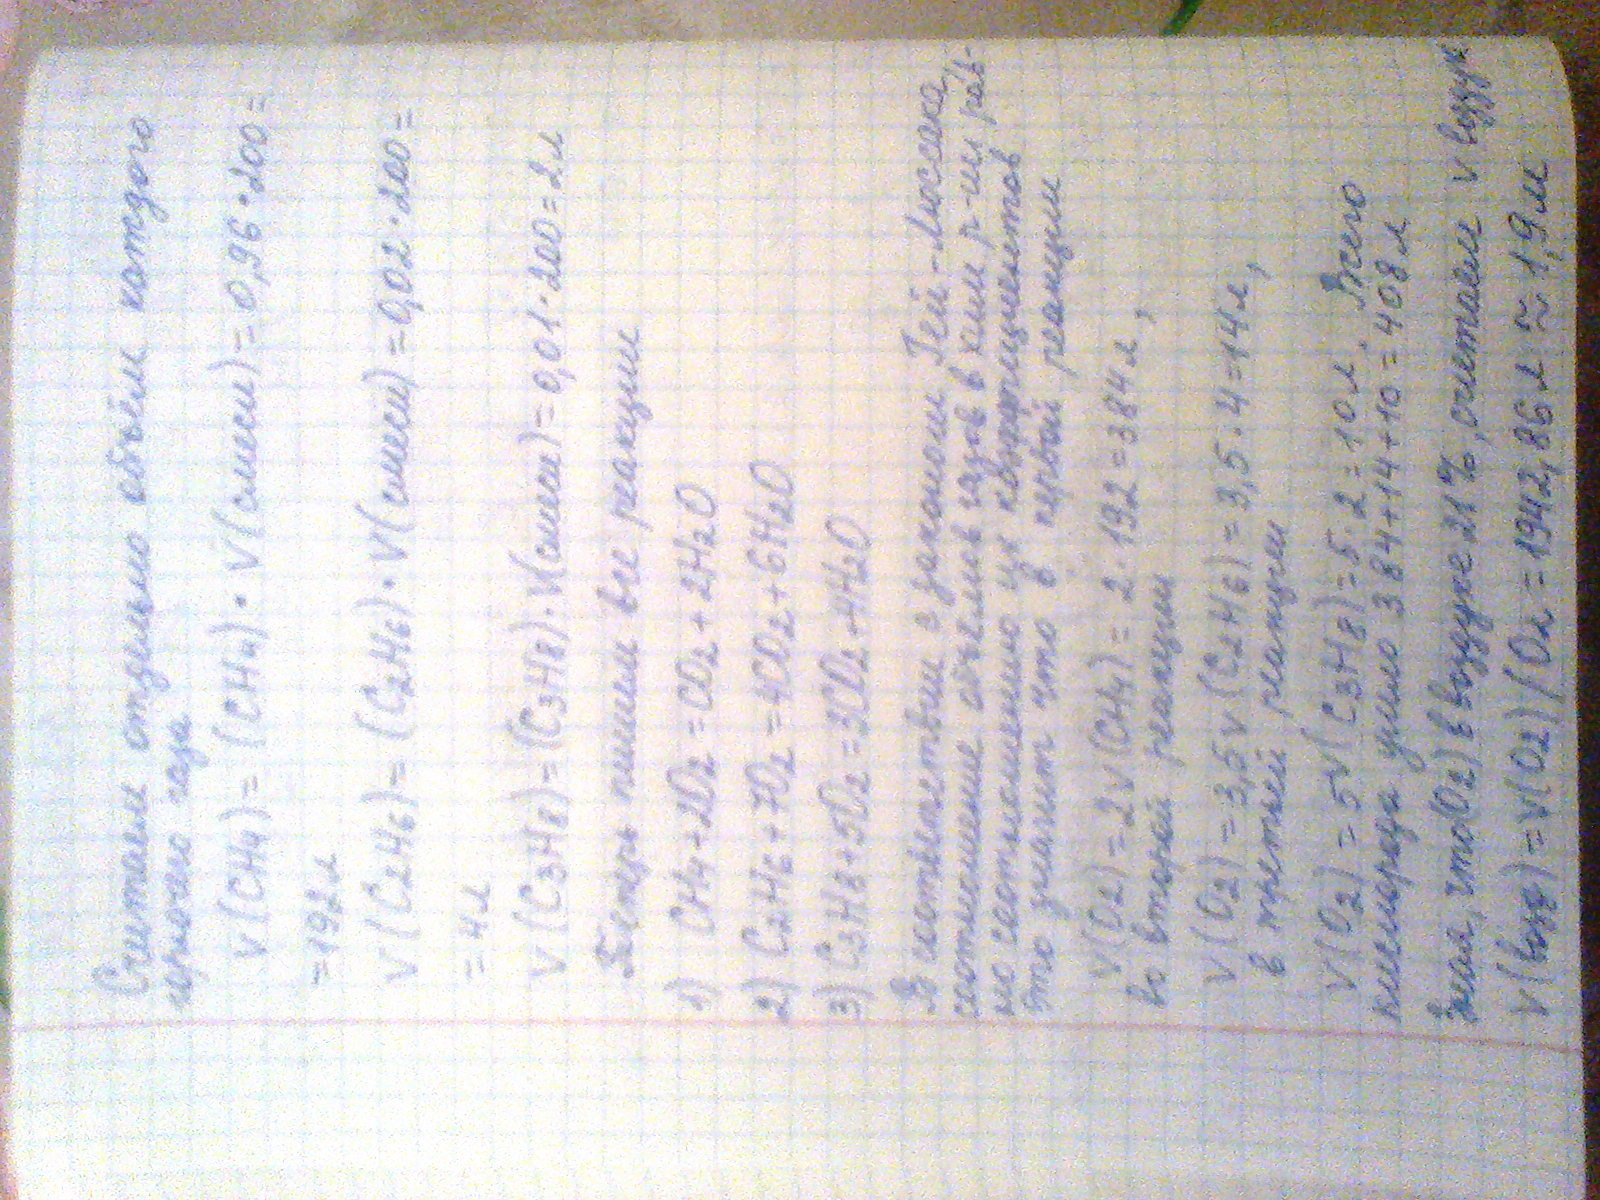 Считаем отдельно объём каждого
горючего газа
V(CH4)= (CH4)·V(смеси)=0,96·200=
=192л
V(C2H6)= (C2H6)·V(смеси)=0,02·200=
=4л
V(C3H8)=(C3H8)·V(смеси)=0,01·200=2л
Теперь пишем все реакции
1) CH4+2O2=CO2+2H2O
2) C2H6+7O2=4CO2+6H2O
3) C3H8+5O2=3CO2+4H2O
В соответствии з законом Гей-Люссака,
соотношение объёмов газов в хим р-ии рав-
но соотношению их коэффициентов
это значит что в первой реакции
V(O2)=2V(CH4)=2·192=384л,
во второй реакции
V(O2)=3,5V(C2H6)=3,5·4=14л,
в третьей реакции
V(O2)=5V(C3H8)=5·2=10л. Всего
кислорода ушло 384+14+10=408л
Зная, что(O2)в воздухе 21%,считаем V воздух
V(возд)=V(O2)/(O2=1942,86л≈1,9м